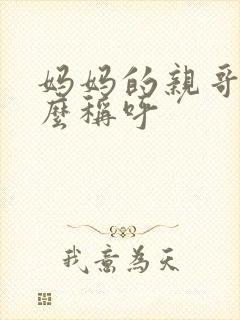 妈妈的亲哥
麼稱呼
我意為天